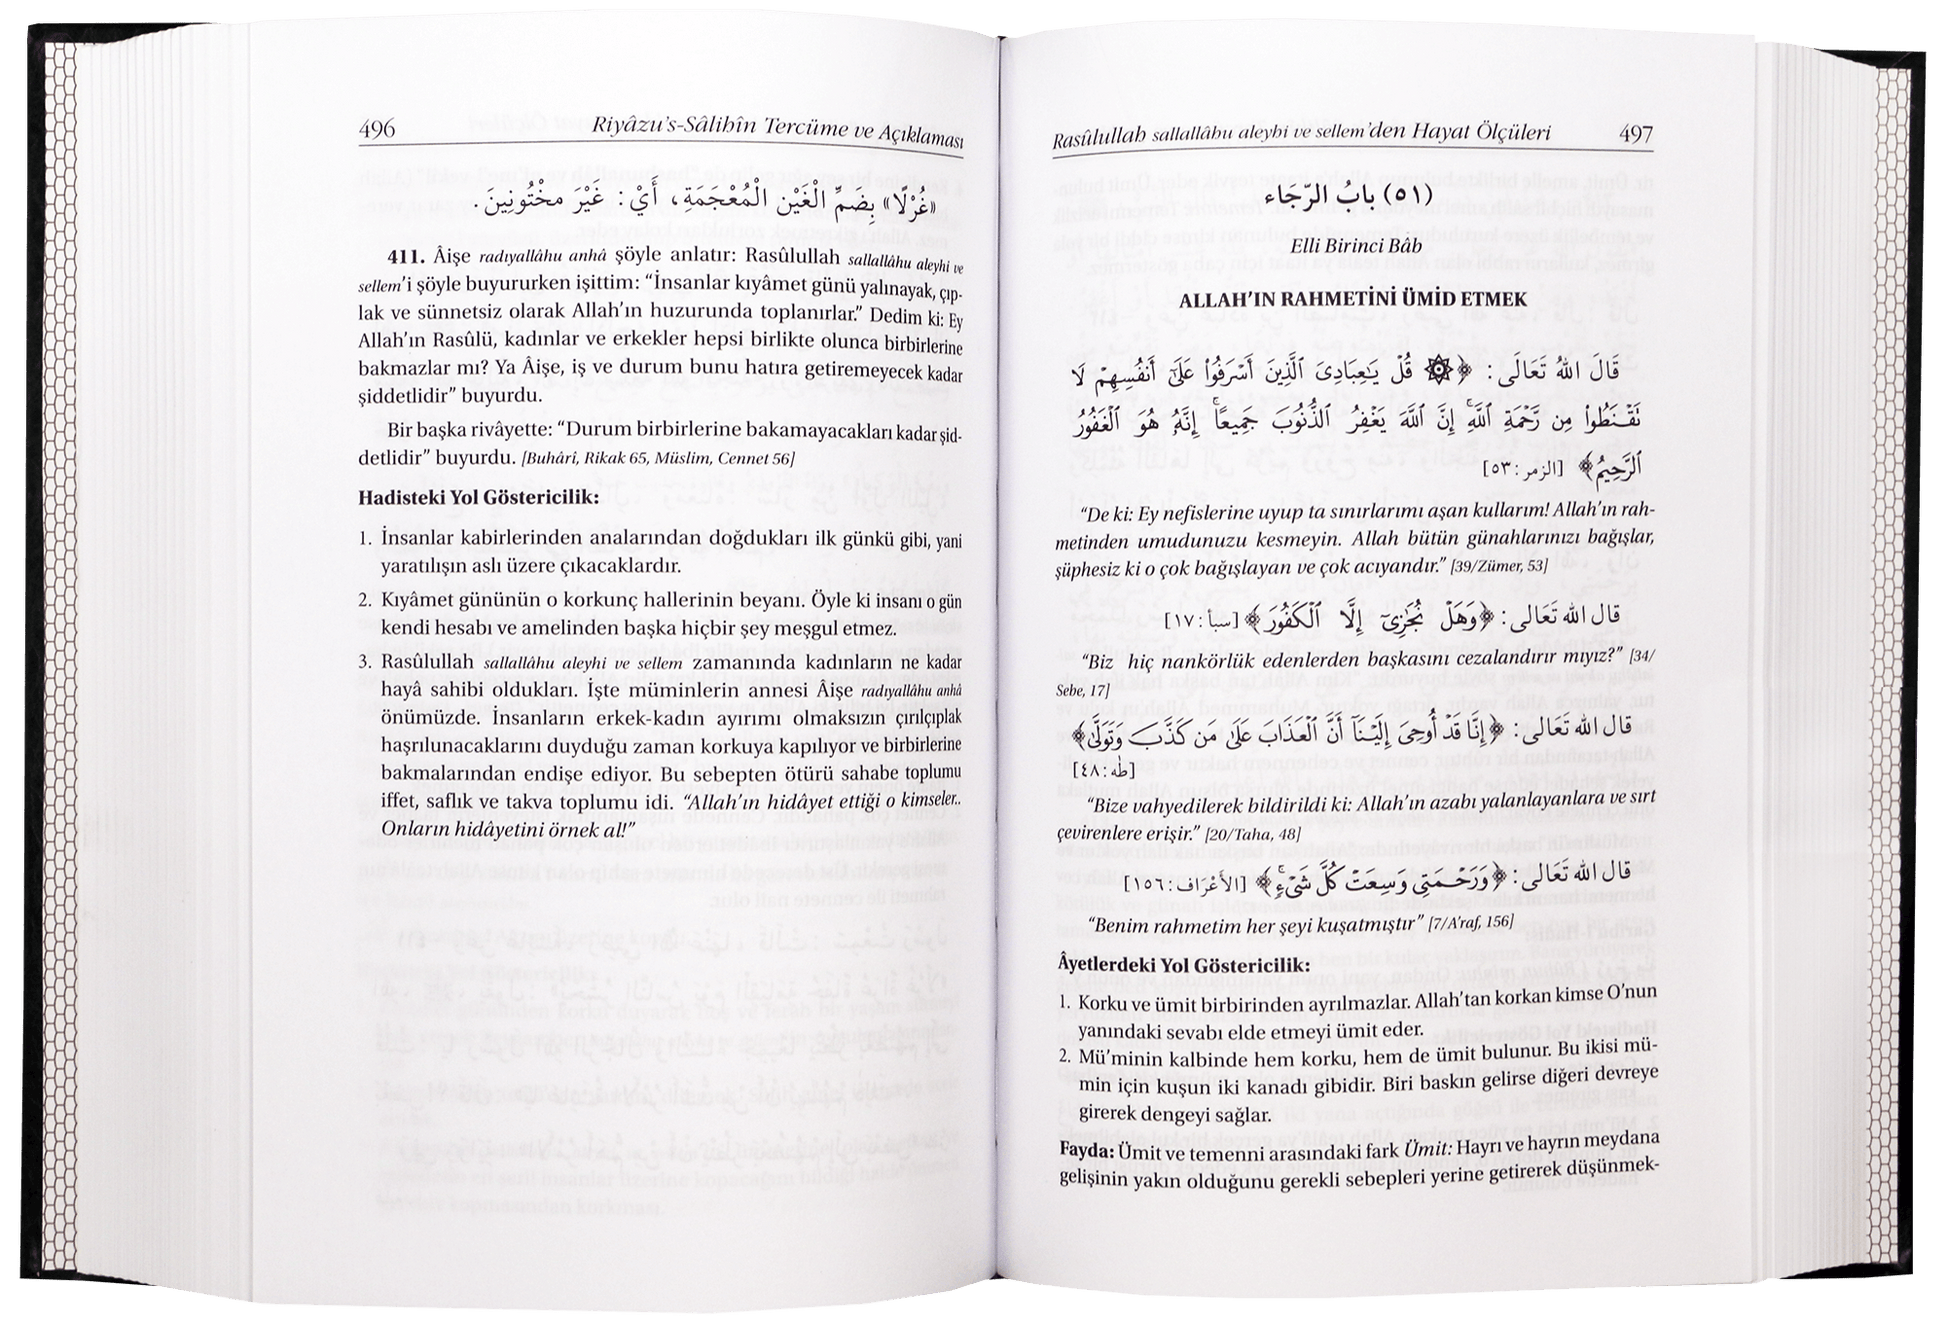 496
Riyâzu's-Sâlihîn Tercüme ve Açıklaması
«غُرْلًا» بِضَمِّ الْغَيْنِ الْمُعْجَمَةِ، أَيْ: غَيْرَ مَخْتُونِينَ.
411. Âişe radıyallâhu anhâ şöyle anlatır: Rasûlullah sallallâhu aleyhi ve
sellem'i şöyle buyururken işittim: “İnsanlar kıyâmet günü yalınayak, çıp-
lak ve sünnetsiz olarak Allah'ın huzurunda toplanırlar.” Dedim ki: Ey
Allah'ın Rasûlü, kadınlar ve erkekler hepsi birlikte olunca birbirlerine
bakmazlar mı? Ya Âişe, iş ve durum bunu hatıra getiremeyecek kadar
şiddetlidir” buyurdu.
Bir başka rivâyette: “Durum birbirlerine bakamayacakları kadar şid-
detlidir” buyurdu. [Buhârî, Rikak 65, Müslim, Cennet 56]
Hadisteki Yol Göstericilik:
1. İnsanlar kabirlerinden analarından doğdukları ilk günkü gibi, yani
yaratılışın aslı üzere çıkacaklardır.
2. Kıyâmet gününün o korkunç hallerinin beyanı. Öyle ki insanı o gün
kendi hesabı ve amelinden başka hiçbir şey meşgul etmez.
3. Rasûlullah sallallâhu aleyhi ve sellem zamanında kadınların ne kadar
hayâ sahibi oldukları. İşte müminlerin annesi Âişe radıyallâhu anhâ
önümüzde. İnsanların erkek-kadın ayırımı olmaksızın çırılçıplak
haşrılunacaklarını duyduğu zaman korkuya kapılıyor ve birbirlerine
bakmalarından endişe ediyor. Bu sebepten ötürü sahabe toplumu
iffet, saflık ve takva toplumu idi. “Allah'ın hidâyet ettiği o kimseler..
Onların hidâyetini örnek al!”
Rasûlullah sallallâhu aleyhi ve sellem'den Hayat Ölçüleri
497
(٥١) بابُ الرَّجَاء
Elli Birinci Bâb
ALLAH'IN RAHMETİNİ ÜMİD ETMEK
قَالَ اللهُ تَعَالَى: ﴿۞ قُلْ يَٰعِبَادِىَ ٱلَّذِينَ أَسْرَفُوا۟ عَلَىٰٓ أَنفُسِهِمْ لَا
تَقْنَطُوا۟ مِن رَّحْمَةِ ٱللَّهِ ۚ إِنَّ ٱللَّهَ يَغْفِرُ ٱلذُّنُوبَ جَمِيعًا ۚ إِنَّهُۥ هُوَ ٱلْغَفُورُ
ٱلرَّحِيمُ﴾ [الزمر: ٥٣]
“De ki: Ey nefislerine uyup ta sınırlarımı aşan kullarım! Allah'ın rah-
metinden umudunuzu kesmeyin. Allah bütün günahlarınızı bağışlar,
şüphesiz ki o çok bağışlayan ve çok acıyandır.” [39/Zümer, 53]
قال الله تَعَالى: ﴿وَهَلْ نُجَٰزِىٓ إِلَّا ٱلْكَفُورَ﴾ [سبأ: ١٧]
“Biz hiç nankörlük edenlerden başkasını cezalandırır mıyız?” [34/
Sebe, 17]
قال الله تَعَالى: ﴿إِنَّا قَدْ أُوحِىَ إِلَيْنَآ أَنَّ ٱلْعَذَابَ عَلَىٰ مَن كَذَّبَ وَتَوَلَّىٰ﴾
[طه: ٤٨]
“Bize vahyedilerek bildirildi ki: Allah'ın azabı yalanlayanlara ve sırt
çevirenlere erişir.” [20/Taha, 48]
قال الله تَعَالى: ﴿وَرَحْمَتِى وَسِعَتْ كُلَّ شَىْءٍ ۚ﴾ [الأَعْرَاف: ١٥٦]
“Benim rahmetim her şeyi kuşatmıştır” [7/A'raf, 156]
Âyetlerdeki Yol Göstericilik:
1. Korku ve ümit birbirinden ayrılmazlar. Allah'tan korkan kimse O'nun
yanındaki sevabı elde etmeyi ümit eder.
2. Mü'minin kalbinde hem korku, hem de ümit bulunur. Bu ikisi mü-
min için kuşun iki kanadı gibidir. Biri baskın gelirse diğeri devreye
girerek dengeyi sağlar.
Fayda: Ümit ve temenni arasındaki fark Ümit: Hayrı ve hayrın meydana
gelişinin yakın olduğunu gerekli sebepleri yerine getirerek düşünmek-